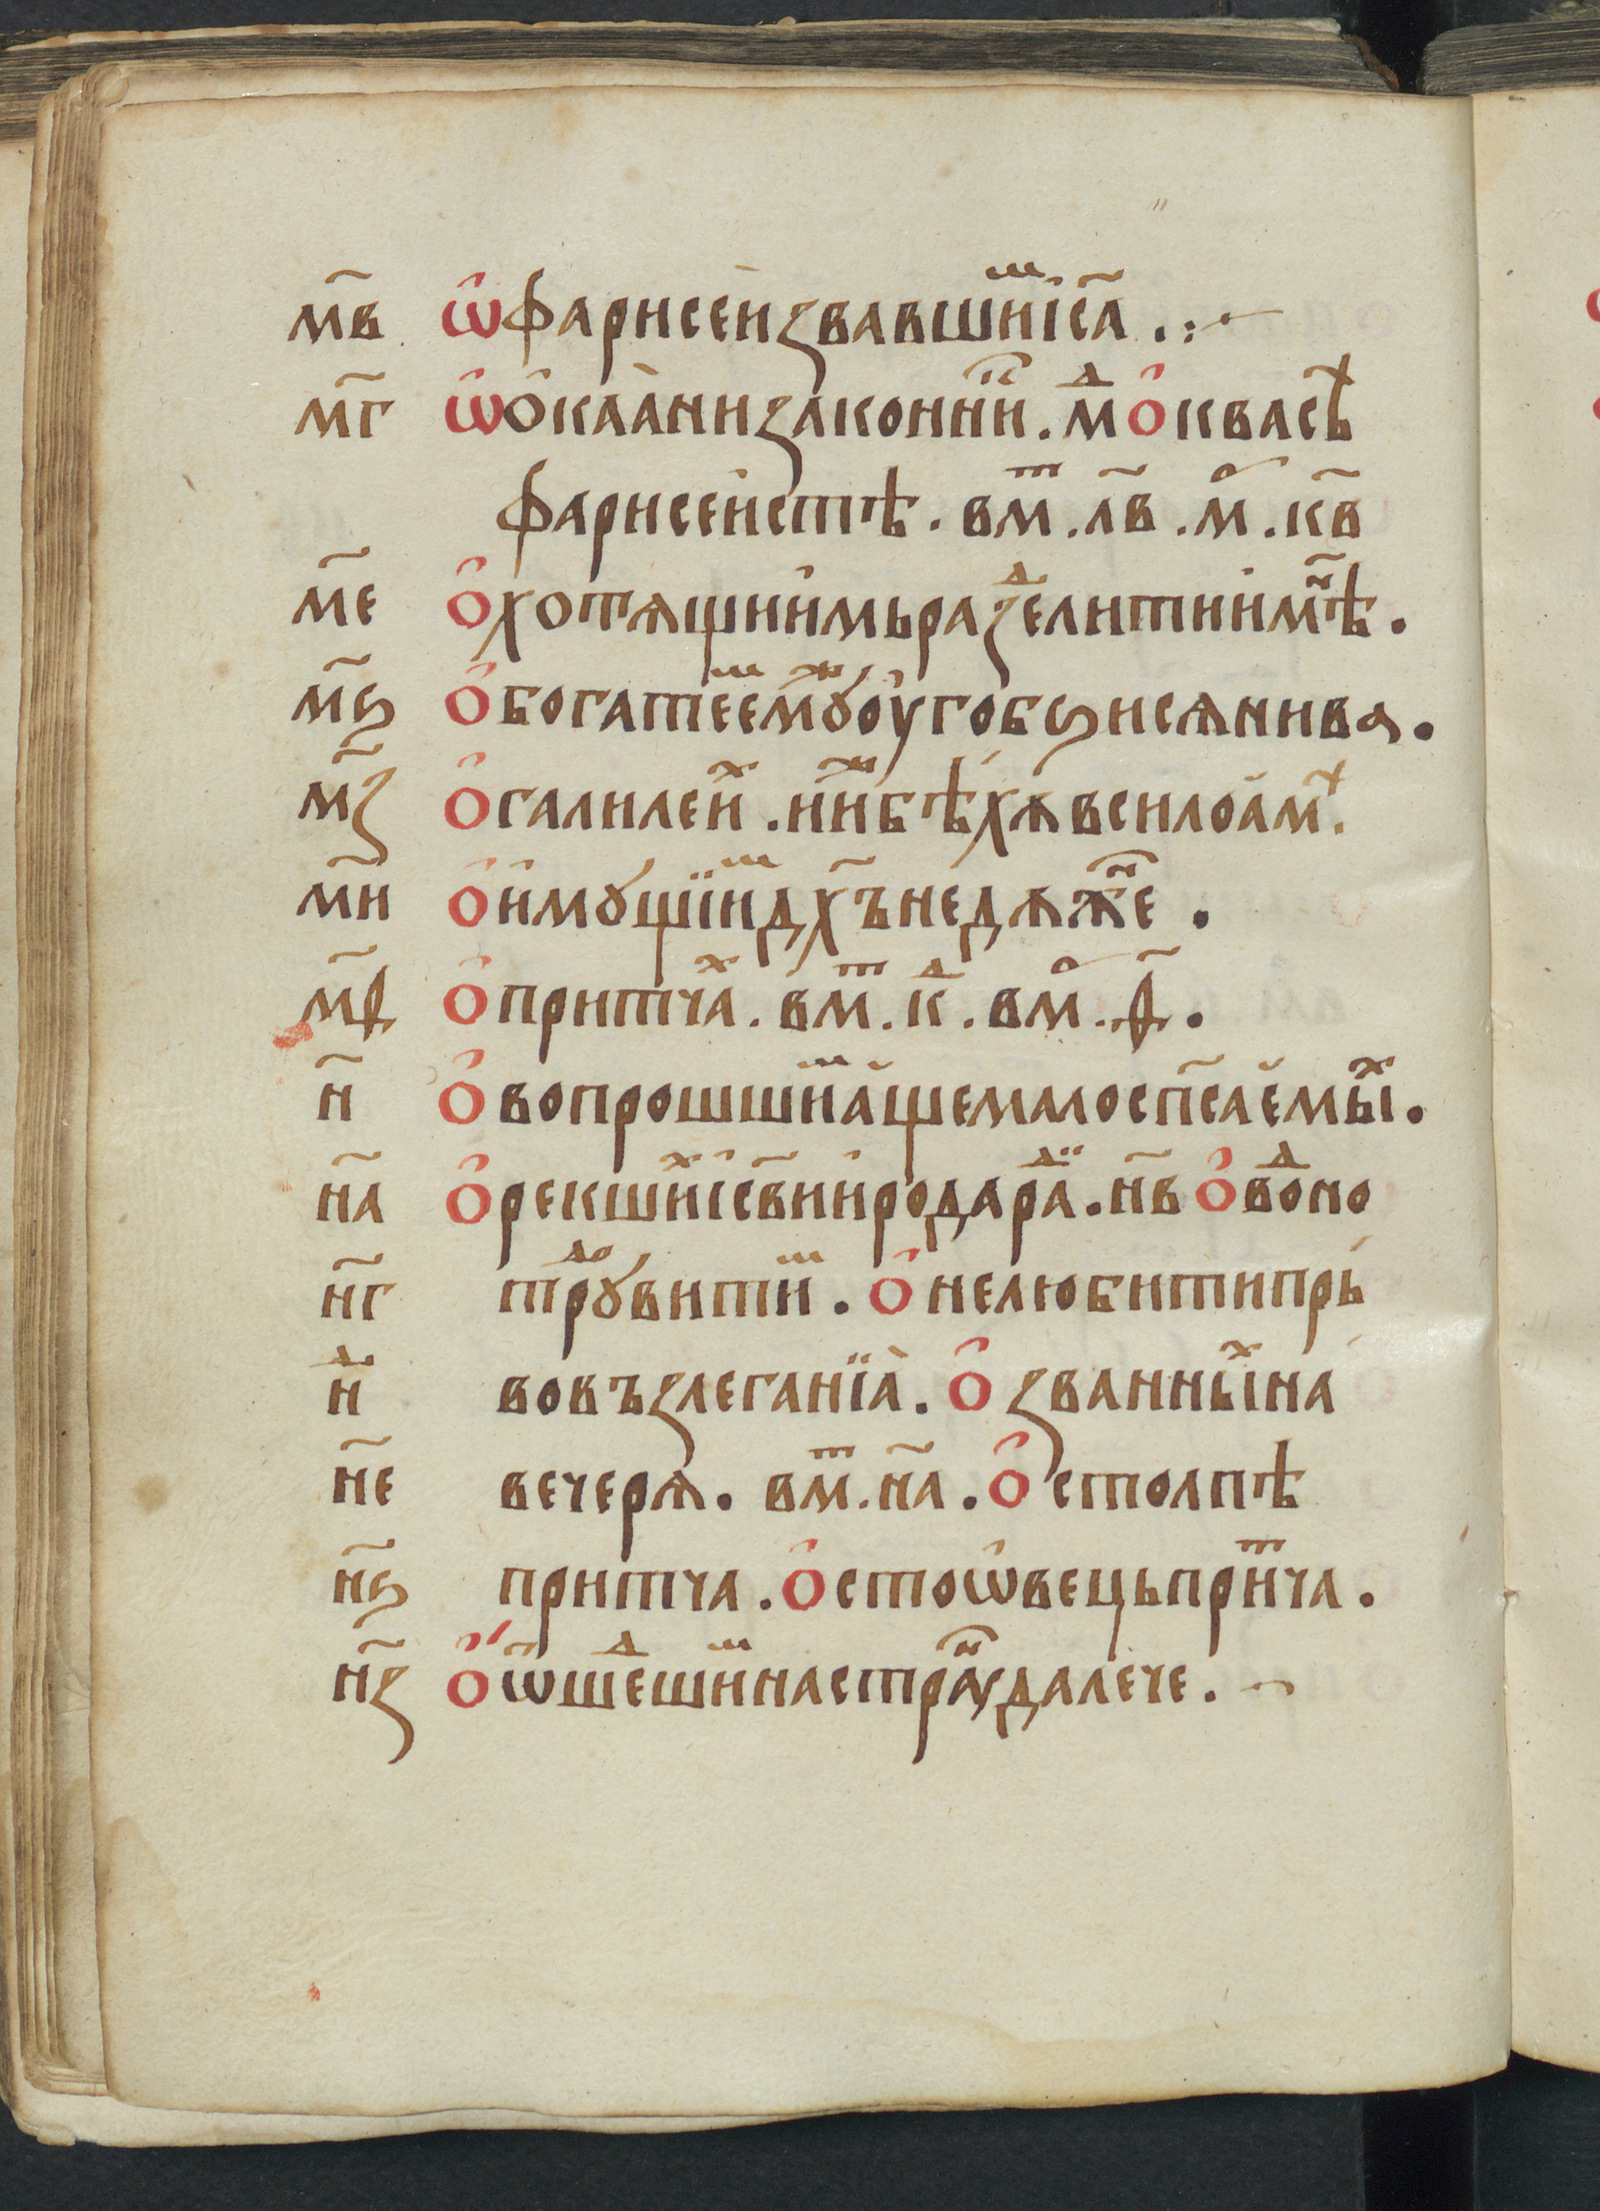 м҃в ѡ҆ фарисеи звавшⷨиі і҃са .:~
м҃г ѡ҆ ѻ҆каани законниⷦ҇. мⷣ ѻ҆ квасѣⷯ
фарисеистѣ . вⷨ҇ . л҃в . мⷬ . к҃в
м҃е ѻ҆ хотѧщиимь разⷣелити имⷩѣ .
м҃ѕ ѻ҆ богатеⷨ емꙋⷤ оугобѕисѧ нива .
м҃з ѻ҆ галилеиⷯ . иⷤ бѣхѫ в силоамⷯ .
м҃и ѻ҆ имꙋщіиⷨ дх҃ъ недѫжⷩе .
м҃ѳ ѻ҆ притчаⷯ . вⷨ҇ . кⷣ . в мⷬ . ѳ҃ .
н҃ ѻ҆ вопрошшиⷨ аще мало сп҃саемыⷯ .
н҃а ѻ҆ рекшиⷯ і҃сви иродараⷣ . н҃в ѻ҆ воⷣно
н҃г трꙋⷣвитиⷨ . ѻ҆ не любити пръ
нⷣ вовъзлеганїа . ѻ҆ званныⷯ на
н҃е вечерѧ . вⷨ҇ . н҃а . ѻ҆ столпѣ
н҃ѕ притча . ѻ҆ сто ѡвець приⷮча .
н҃з ѻ҆ ѿшеⷣшиⷨ на странⷩꙋ далече .~